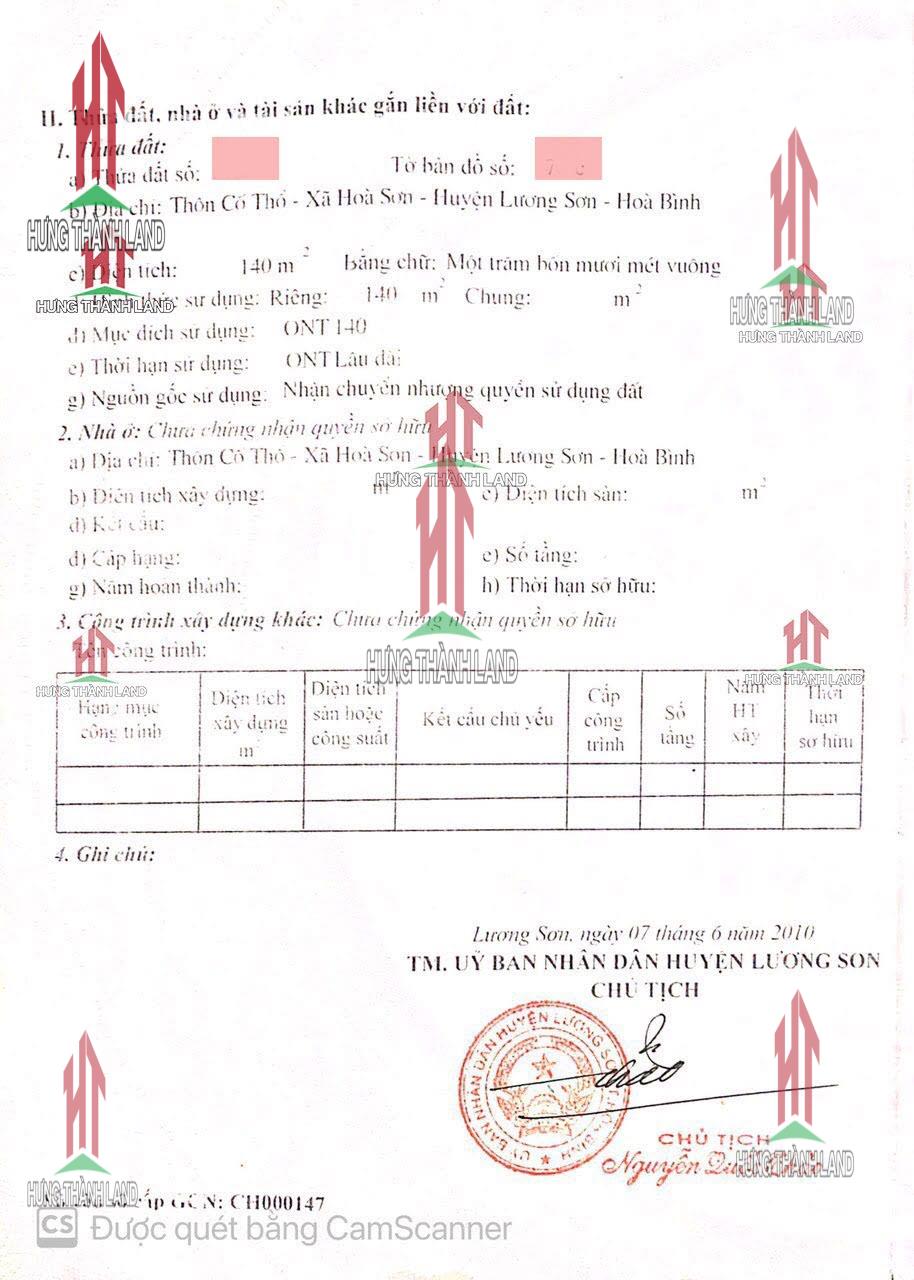 II. Thửa đất, nhà ở và tài sản khác gắn liền với đất:
1. Thửa đất:
a) Thửa đất số: Tờ bản đồ số:
b) Địa chỉ: Thôn Cố Thổ - Xã Hoà Sơn - Huyện Lương Sơn - Hoà Bình
HƯNG THÀNH LAND
c) Diện tích: 140 m² Bằng chữ: Một trăm bốn mươi mét vuông
sử dụng: Riêng: 140 m² Chung: m²
HƯNG THÀNH LAND
HƯNG THÀNH LAND
HƯNG THÀNH LAND
đ) Mục đích sử dụng: ONT 140
e) Thời hạn sử dụng: ONT Lâu dài
g) Nguồn gốc sử dụng: Nhận chuyển nhượng quyền sử dụng đất
2. Nhà ở: Chưa chứng nhận quyền sở hữu
a) Địa chỉ: Thôn Cố Thổ - Xã Hoà Sơn - Huyện Lương Sơn - Hoà Bình
HƯNG THÀNH LAND
b) Diện tích xây dựng: m c) Diện tích sàn: m²
d) Kết cấu:
đ) Cấp hạng: e) Số tầng:
g) Năm hoàn thành: h) Thời hạn sở hữu:
3. Công trình xây dựng khác: Chưa chứng nhận quyền sở hữu
Tên công trình:
HƯNG THÀNH LAND
HƯNG THÀNH LAND
HƯNG THÀNH LAND
Hạng mục công trình
Diện tích xây dựng m²
Diện tích sàn hoặc công suất
Kết cấu chủ yếu
Cấp công trình
Số tầng
Năm HT xây
Thời hạn sở hữu
4. Ghi chú:
Lương Sơn, ngày 07 tháng 6 năm 2010
TM. UỶ BAN NHÂN DÂN HUYỆN LƯƠNG SƠN
CHỦ TỊCH
UỶ BAN NHÂN DÂN HUYỆN LƯƠNG SƠN
CHỦ TỊCH
Nguyễn
HƯNG THÀNH LAND
HƯNG THÀNH LAND
cấp GCN: CH000147
CS Được quét bằng CamScanner